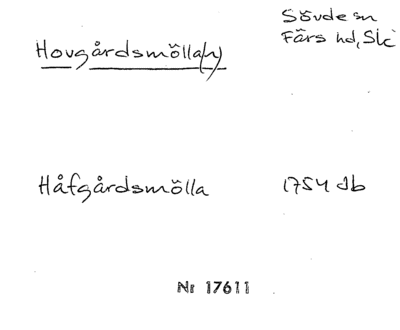 Sövde sn
Hovgårdsmölla(n)
Färs hd, Sk
Håfgårdsmölla 1754 db
Nr 17611